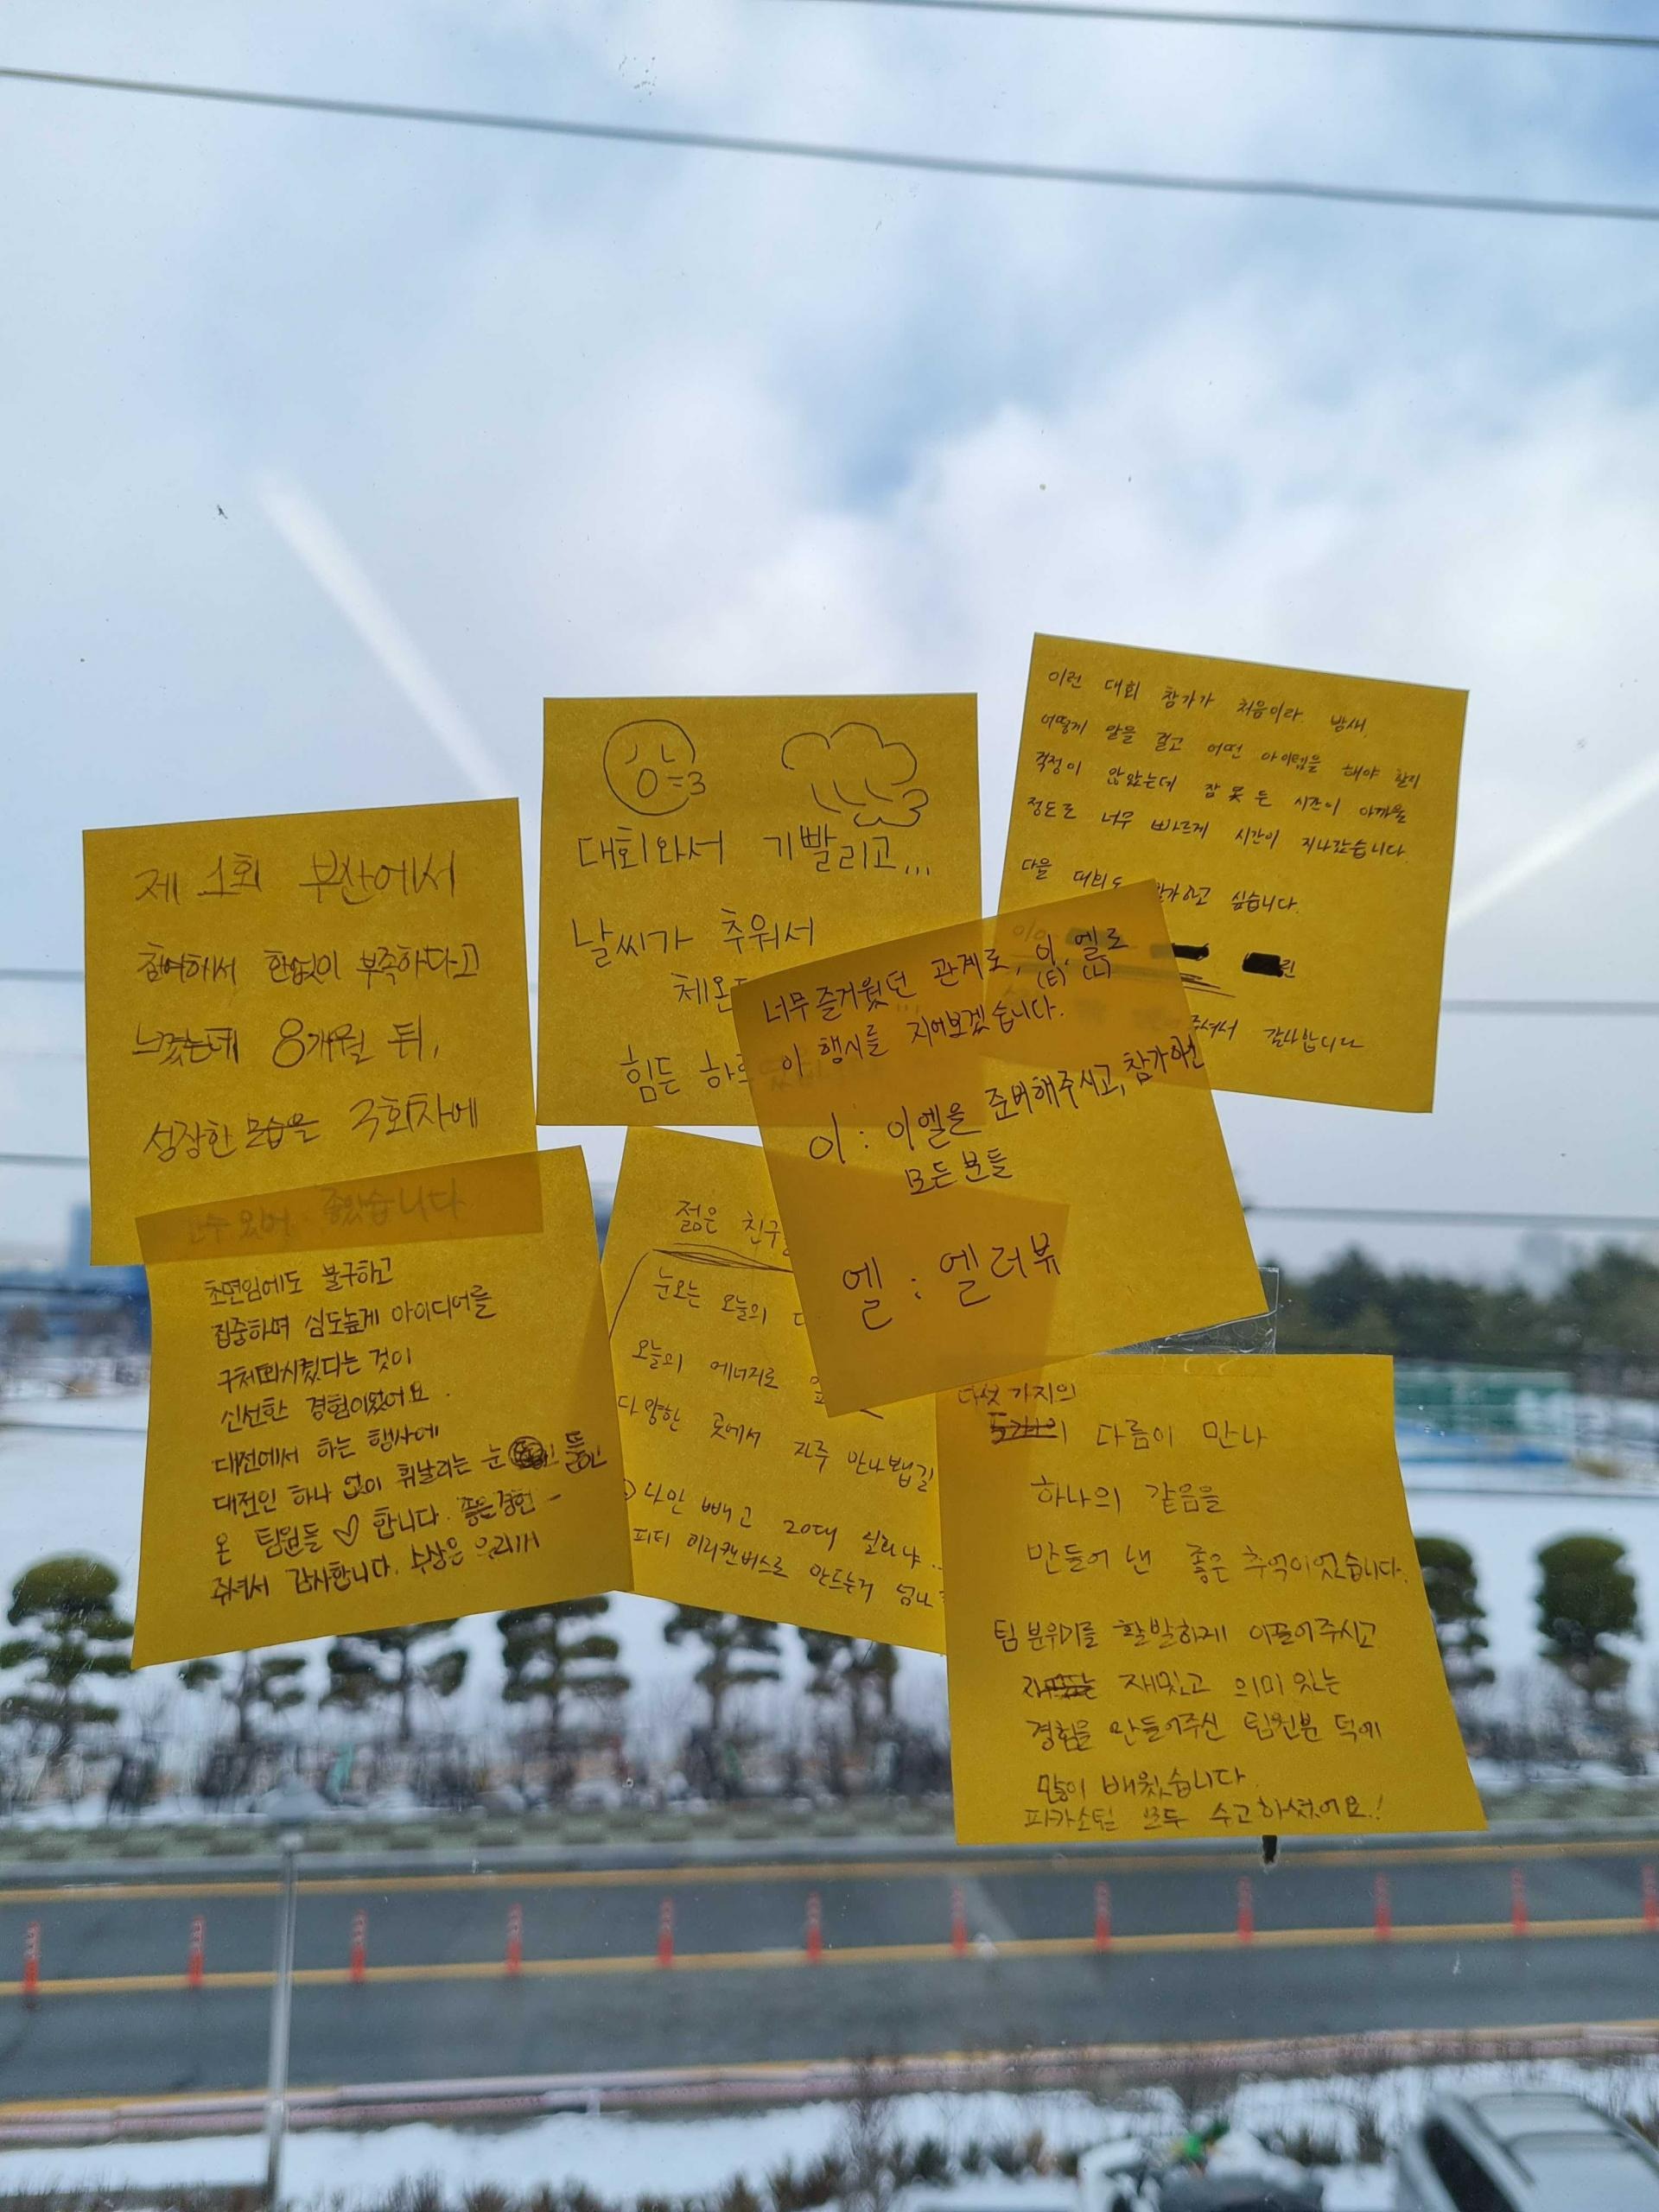 제 1회 부산에서
참여해서 한없이 부족하다고
느꼈는데 8개월 뒤,
성장한 모습을 3회차에
수 있어 좋았습니다
대회와서 기빨리고...
날씨가 추워서
체온
힘든 하루
이런 대회 참가가 처음이라 밤새
어떻게 말을 걸고 어떤 아이템을 해야 할지
걱정이 많았는데 잠 못 든 시간이 아까울
정도로 너무 빠르게 시간이 지나갔습니다.
다음 대회도 참가하고 싶습니다.
린
주셔서 감사합니다
너무 즐거웠던 관계로, 이, 엘로
(E) (L)
이 행시를 지어보겠습니다.
이 : 이엘을 준비해주시고, 참가하신
모든 분들
엘 : 엘러뷰
초면임에도 불구하고
집중하며 심도높게 아이디어를
구체화시켰다는 것이
신선한 경험이었어요.
대전에서 하는 행사에
대전인 하나 없이 휘날리는 눈 뚫고
온 팀원들 ♡ 합니다. 좋은경험
주셔서 감사합니다. 수상은 우리꺼
젊은 친구
눈오는 오늘의
오늘의 에너지로
다양한 곳에서 자주 만나뵙길
나만 빼고 20대 실화냐..
피티 미리캔버스로 만드는거 넘나
다섯가지의
다름이 만나
하나의 같음을
만들어 낸 좋은 추억이었습니다.
팀 분위기를 활발하게 이끌어주시고
재밌고 의미 있는
경험을 만들어주신 팀원분 덕에
많이 배웠습니다.
피카소팀 모두 수고하셨어요!